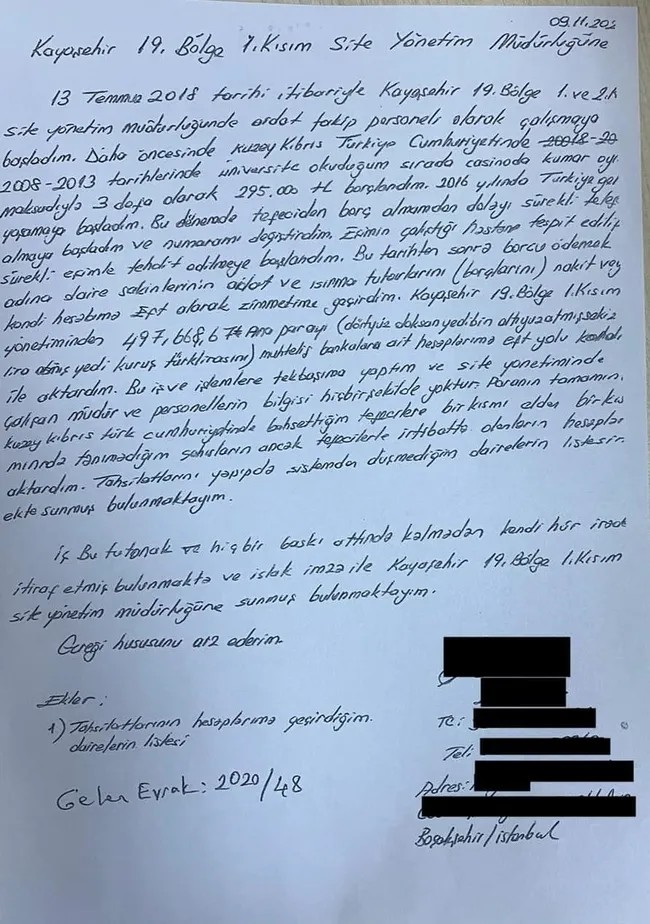 09.11.202
Kayaşehir 19. Bölge 1. Kısım Site Yönetim Müdürlüğüne
13 Temmuz 2018 tarihi itibariyle Kayaşehir 19. Bölge 1. ve 2.k
site yönetim müdürlüğünde aidat takip personeli olarak çalışmaya
başladım. Daha öncesinde Kuzey Kıbrıs Türkiye Cumhuriyetinde 20018-20
2008-2013 tarihlerinde üniversite okuduğum sırada casinoda kumar oy
maksadıyla 3 defa olarak 295.000 tl borçlandım. 2016 yılında Türkiye gel
yaşamaya başladım. Bu dönemde tefeciden borç almamdan dolayı sürekli telef
almaya başladım ve numaramı değiştirdim. Eşimin çalıştığı hastane tespit edilip
sürekli eşimle tehdit edilmeye başlandım. Bu tarihten sonra borcu ödemek
adına daire sakinlerinin aidat ve ısınma tutarlarını (borçlarını) nakit vey
kendi hesabıma Eft olarak zimmetime geçirdim. Kayaşehir 19. Bölge 1. Kısım
yönetiminden 497,668,67 parayı (dörtyüz doksan yedibin altıyüzatmışsekiz
lira atmış yedi kuruş türklirası) muhtelif bankalara ait hesaplarıma eft yolu
ile aktardım. Bu iş ve işlemlere tekbaşıma yaptım ve site yönetiminde
çalışan müdür ve personellerin bilgisi hiçbirşekilde yoktur. Paranın tamamın.
kuzey kıbrıs türk cumhuriyetinde bahsettiğim tefecilere bir kısmı elden bir kıs
mınıda tanımadığım şahısların ancak tefecilerle irtibatta olanların hesaplar
aktardım. Tahsilatlarını yapıpda sistemden düşmediğim dairelerin listesir
ekte sunmuş bulunmaktayım.
İş Bu tutanak ve hiç bir baskı altında kalmadan kendi hür irade
itiraf etmiş bulunmakta ve ıslak imza ile Kayaşehir 19. Bölge 1. Kısım
site yönetim müdürlüğüne sunmuş bulunmaktayım.
Gereği hususunu arz ederim.
Ekler:
1) Tahsilatlarının hesaplarıma geçirdiğim.
dairelerin listesi
Gelen Evrak: 2020/48
TC:
Tel:
Adres:
Başakşehir/istanbul